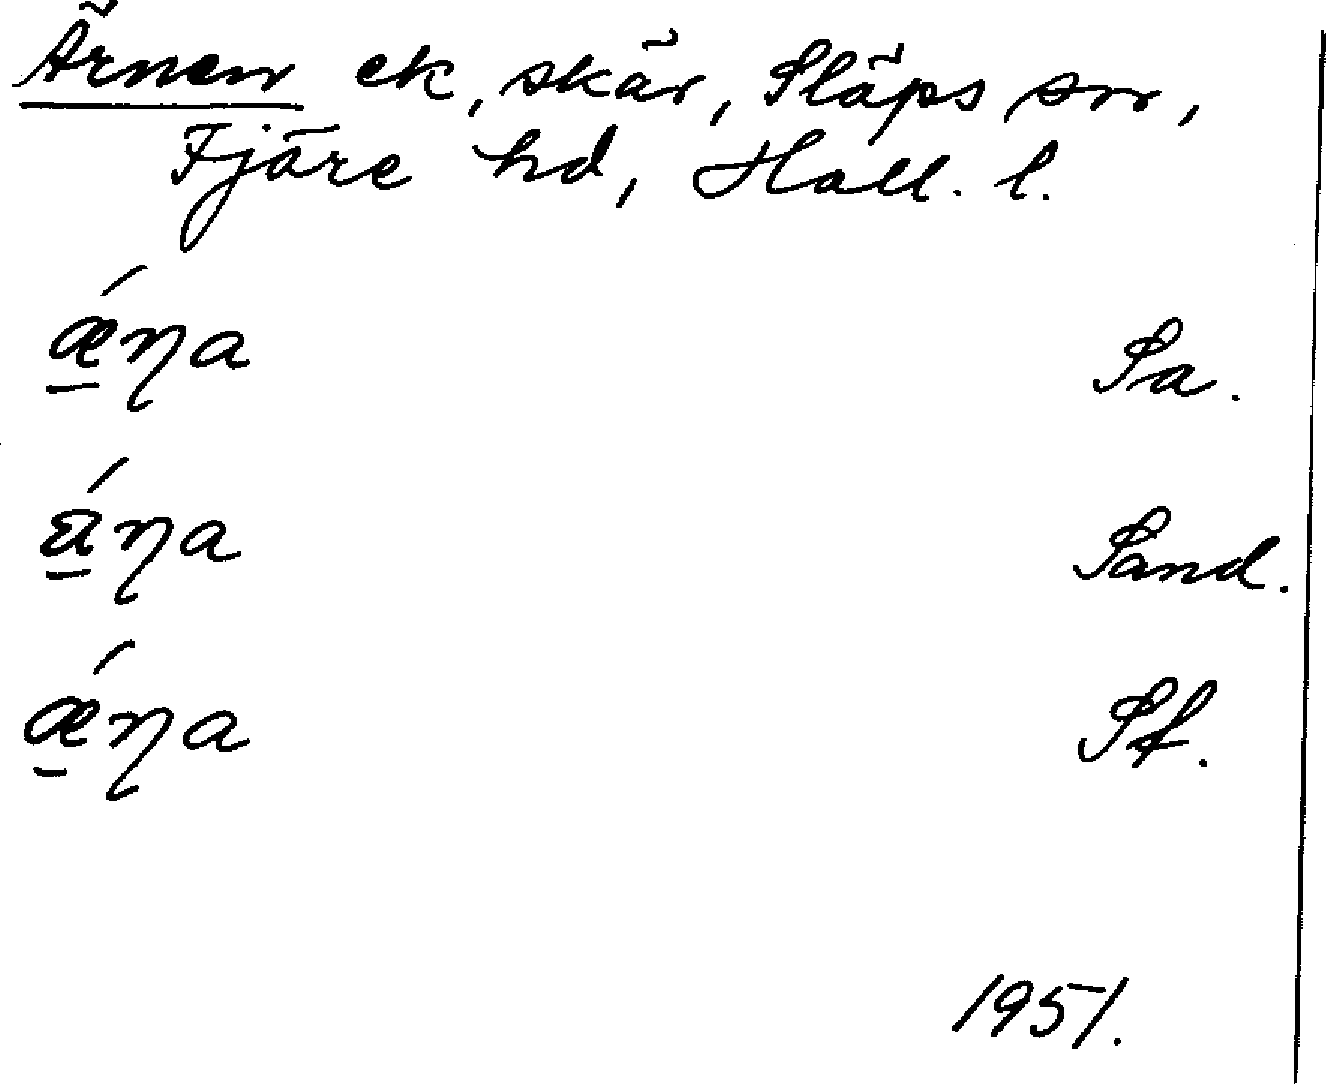 Ärnen ek, skär, Släps sn,
Fjäre hd, Hall. l.
ǽ̱ɳa Sa.
á̱ɳa Sand.
ǽ̱ɳa Sf.
1951.